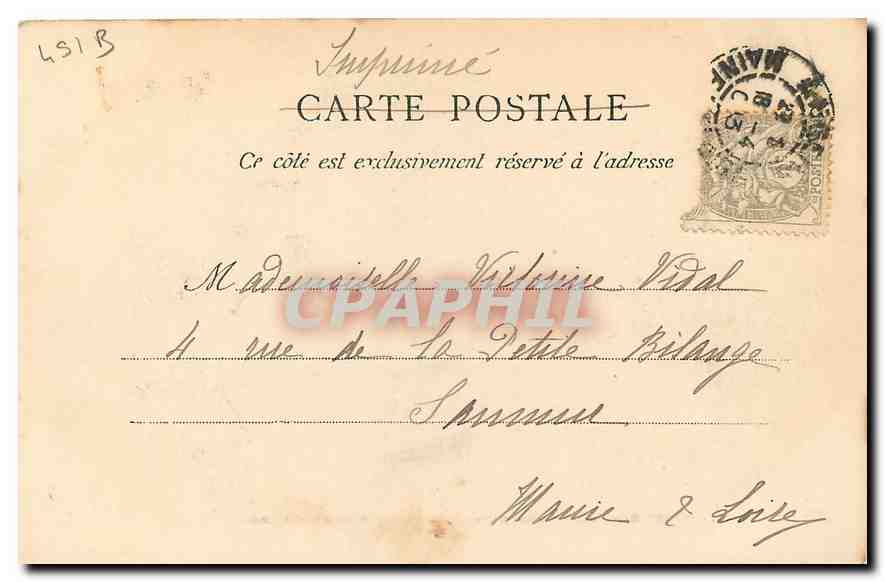 451 B
Imprimé
CARTE POSTALE
Ce côté est exclusivement réservé à l'adresse
MAINE
POSTE
Mademoiselle Victorine Vidal
CPAPHIL
4 rue de la Petite Bilange
Saumur
Maine & Loire